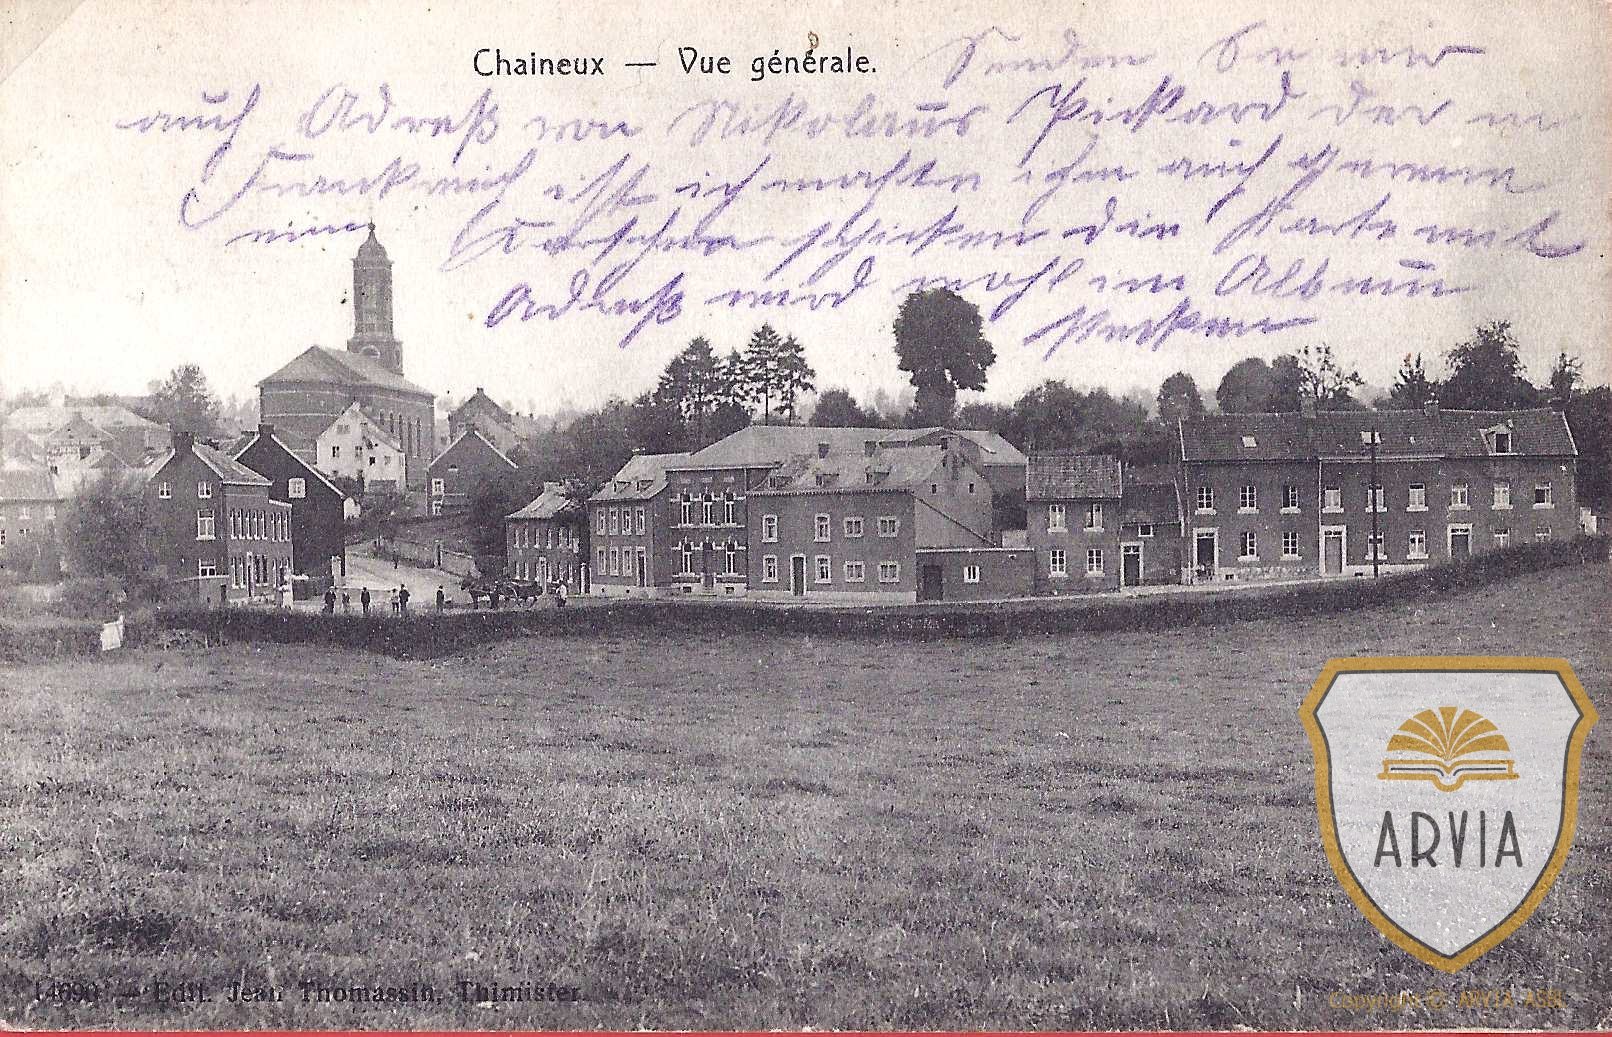 Chaineux — Vue générale.
Senden Sie mir
auch Adreß von Nikolaus Pickard der in
Frankreich ist ich möchte ihm auch gerne
eine schicken die Karte mit
Adreß wird wohl im Album
stecken
14690 — Edit. Jean Thomassin, Thimister.
ARVIA
Copyright © ARVIA ASBL